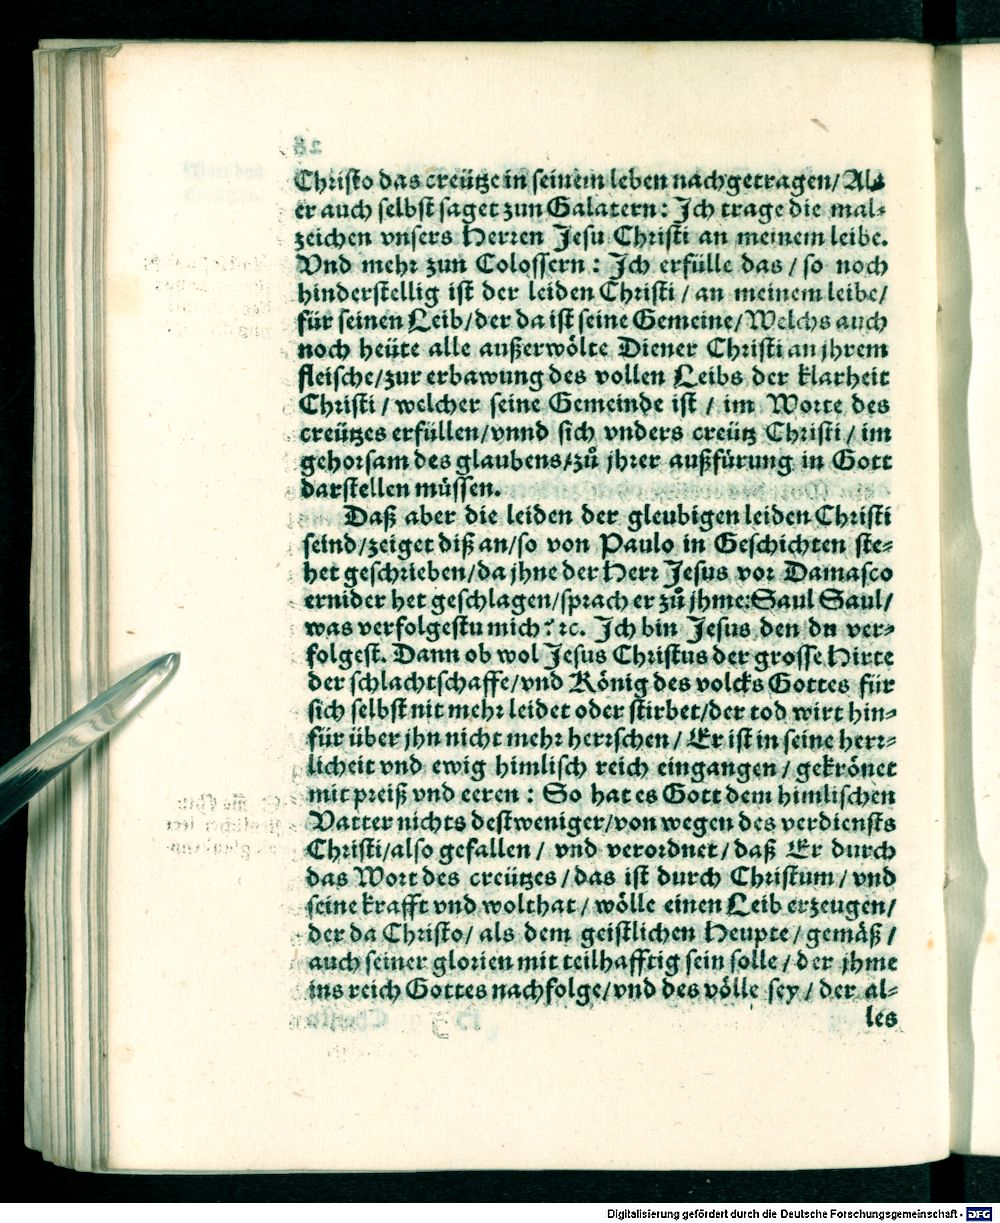 Christo das creütze in seinem leben nachgetragen/ Als
er auch selbst saget zun Galatern: Ich trage die mal⸗
zeichen vnsers Herren Jesu Christi an meinem leibe.
Vnd mehr zun Colossern: Ich erfülle das/ so noch
hinderstellig ist der leiden Christi/ an meinem leibe/
für seinen Leib/ der da ist seine Gemeine/ Welchs auch
noch heüte alle außerwölte Diener Christi an jhrem
fleische/ zur erbawung des vollen Leibs der klarheit
Christi/ welcher seine Gemeinde ist/ im Worte des
creützes erfüllen/ vnnd sich vnders creütz Christi/ im
gehorsam des glaubens/ zů jhrer außfürung in Gott
darstellen müssen.
Daß aber die leiden der gleubigen leiden Christi
seind/ zeiget diß an/ so von Paulo in Geschichten ste⸗
het geschrieben/ da jhne der Herr Jesus vor Damasco
ernider het geschlagen/ sprach er zů jhme: Saul Saul/
was verfolgestu mich? ꝛc. Ich bin Jesus den du ver⸗
folgest. Dann ob wol Jesus Christus der grosse Hirte
der schlachtschaffe/ vnd König des volcks Gottes für
sich selbst nit mehr leidet oder stirbet/ der tod wirt hin⸗
für über jhn nicht mehr herrschen/ Er ist in seine herr⸗
licheit vnd ewig himlisch reich eingangen/ gekrönet
mit preiß vnd eeren: So hat es Gott dem himlischen
Vatter nichts destweniger/ von wegen des verdiensts
Christi/ also gefallen/ vnd verordnet/ daß Er durch
das Wort des creützes/ das ist durch Christum/ vnd
seine krafft vnd wolthat/ wölle einen Leib erzeugen/
der da Christo/ als dem geistlichen Heupte/ gemäß/
auch seiner glorien mit teilhafftig sein solle/ der jhme
ins reich Gottes nachfolge/ vnd des völle sey/ der al⸗
les
Digitalisierung gefördert durch die Deutsche Forschungsgemeinschaft - DFG